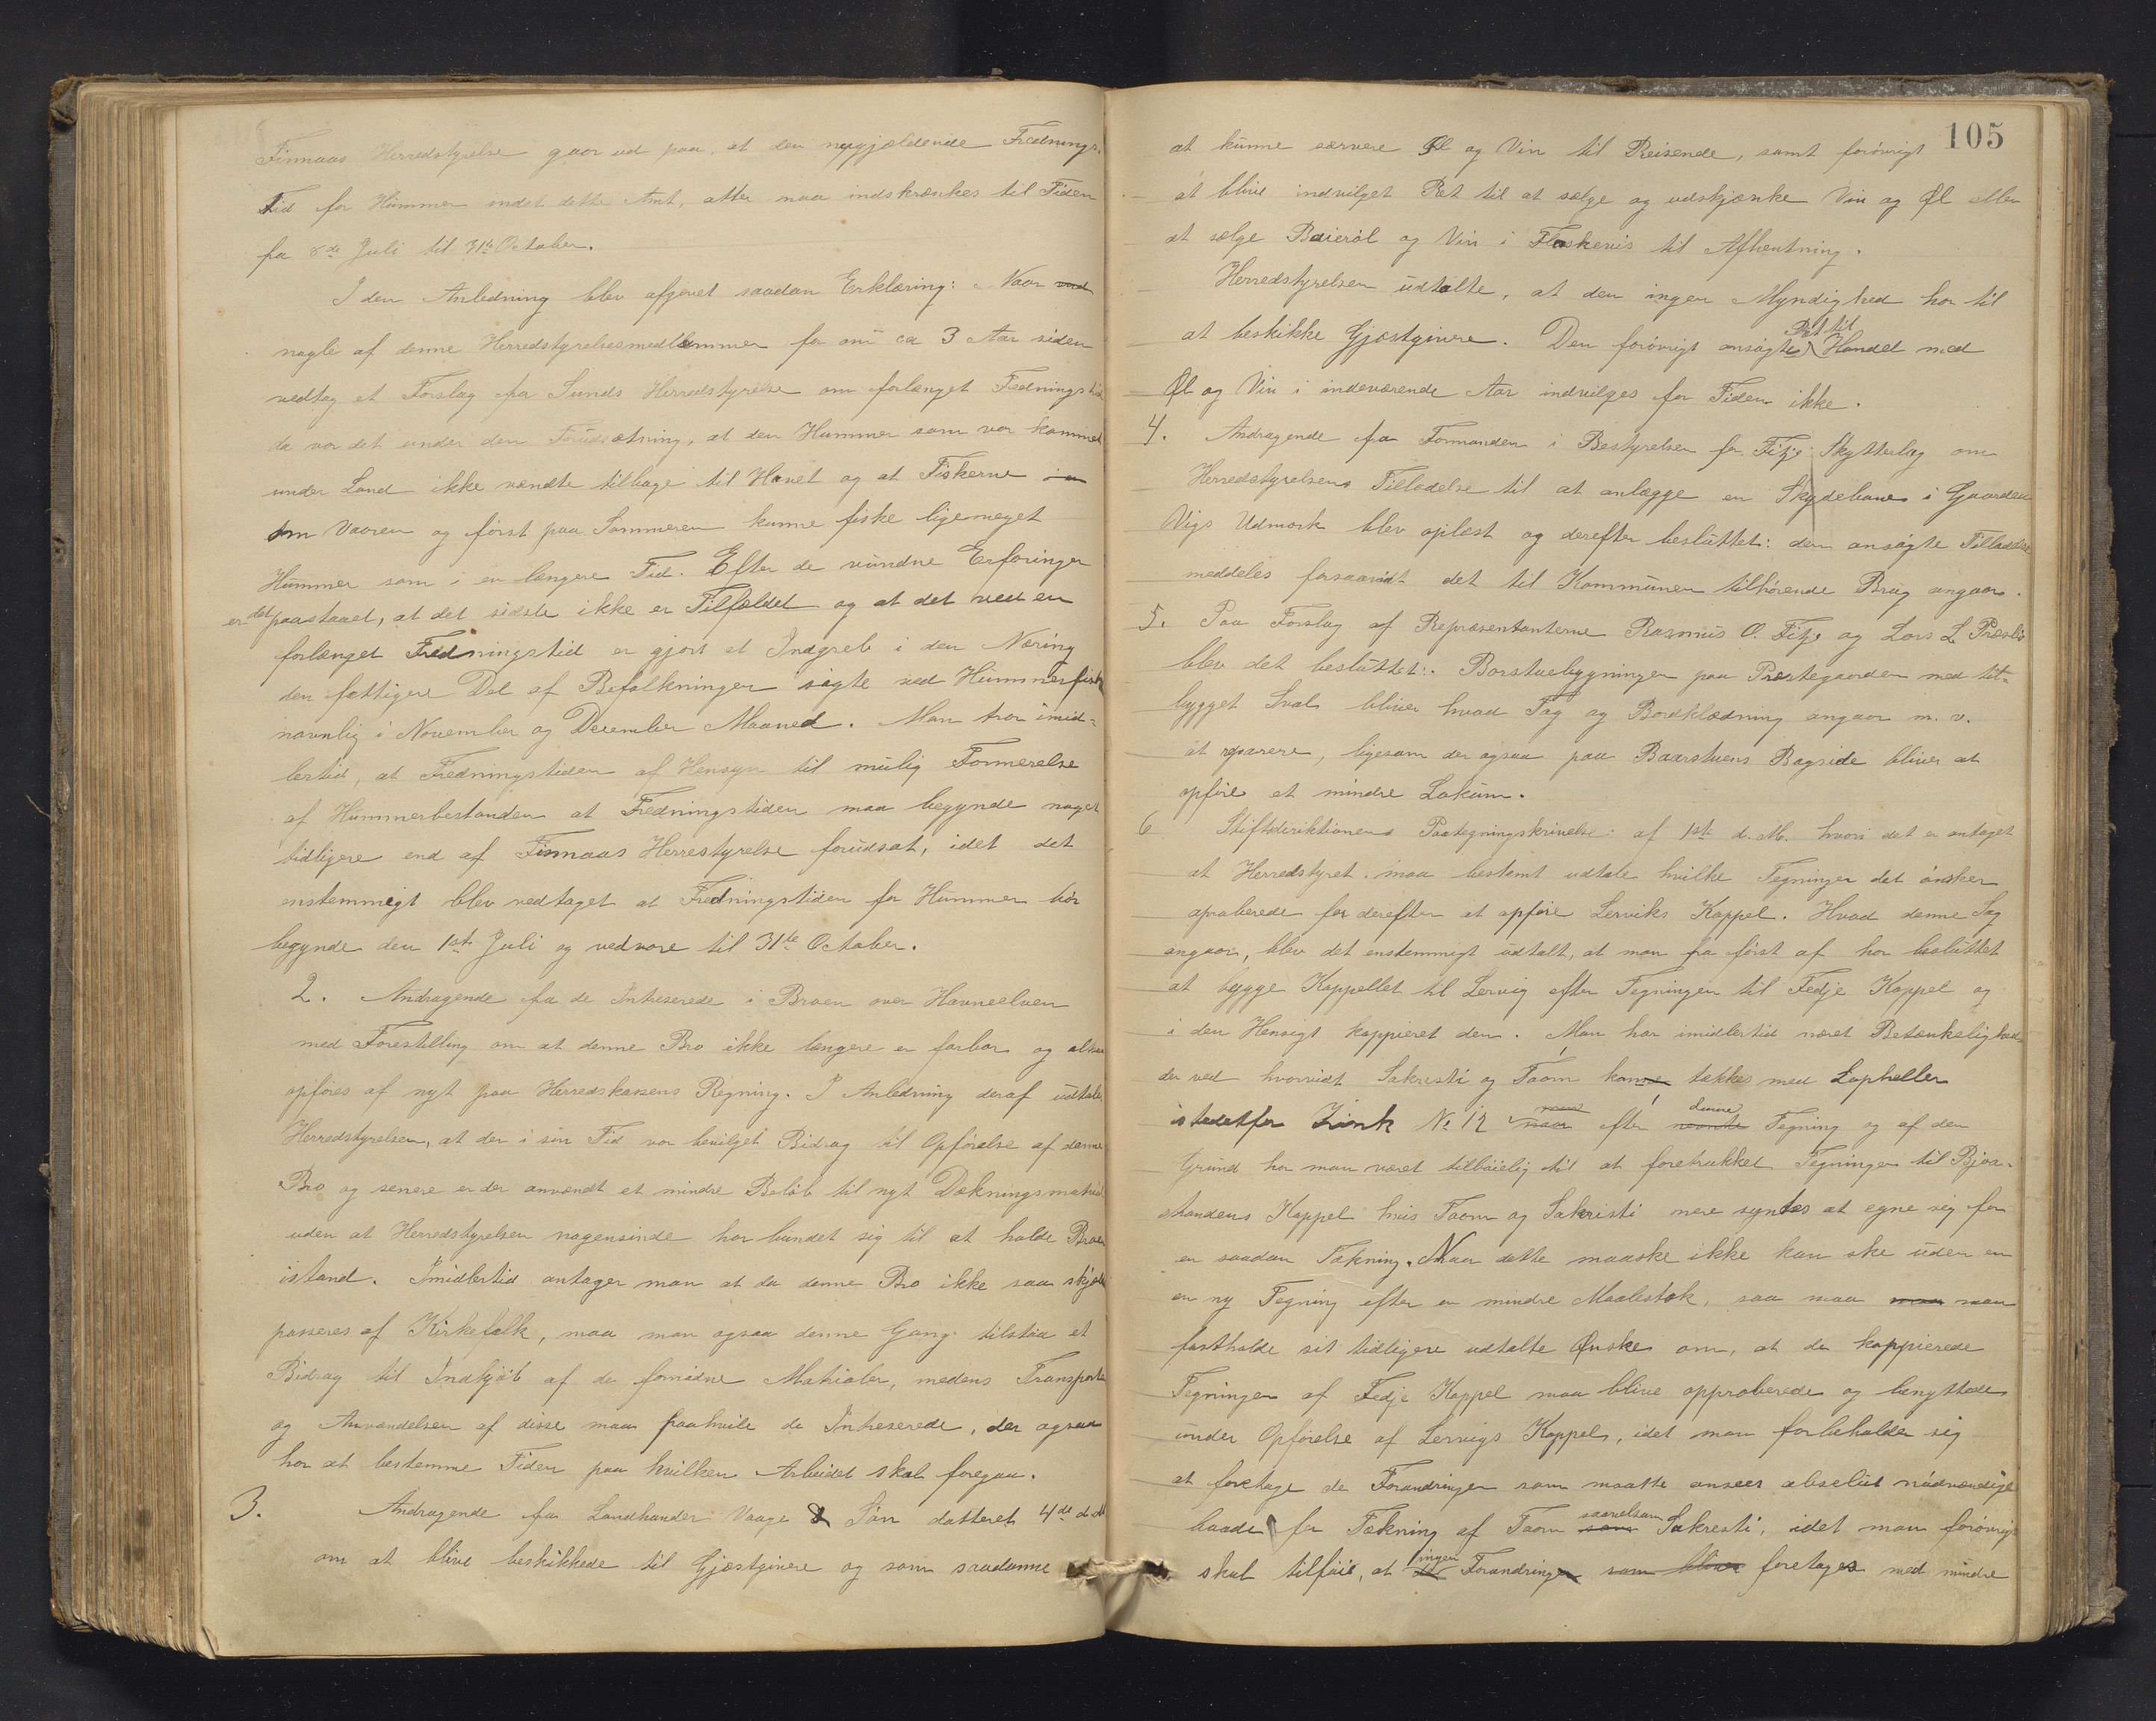 Finnaas Herredstyrelse gaar ud paa, at den nugjældende Frednings-
Tid for Hummer indet dette Amt, atter maa indskrænkes til Tiden
fra 8de Juli til 31te October.
I den Anledning blev afgivet saadan Erklæring: Naar
nogle af denne Herredstyrelsesmedlemmer for om ca 3 Aar siden
vedtog et Forslag fra Sunds Herredstyrelse om forlænget Fredningstid
da var det under den Forudsætning, at den Hummer som var kommet
under Land ikke vændte tilbage til Havet og at Fiskerne
om Vaaren og først paa Sommeren kunne fiske ligemeget
Hummer som i en længere Tid. Efter de vundne Erfaringer
er det paastaaet, at det sidste ikke er Tilfældet og at det ved en
forlænget Fredningstid er gjort et Indgreb i den Næring
den fattigere Del af Befolkningen søgte ved Hummerfisk
navnlig i November og December Maaned. Man tror imid-
lertid, at Fredningstiden af Hensyn til mulig Formerelse
af Hummerbestanden at Fredningstiden maa begynde noget
tidligere end af Finnaas Herrestyrelse forudsat, idet det
enstemmigt blev vedtaget at Fredningstiden for Hummer bør
begynde den 1ste Juli og vedvare til 31te October.
2. Andragende fra de Intreserede i Broen over Havneelven
med Forestilling om at denne Bro ikke længere er farbar og altsaa
opføres af nyt paa Herredskassens Regning. I Anledning deraf udtaler
Herredstyrelsen, at der i sin Tid var bevilget Bidrag til Opførelse af denne
Bro og senere er der anvendt et mindre Beløb til nyt Dækningsmatrial
uden at Herredstyrelsen nogensinde har bundet sig til at holde Broen
istand. Imidlertid antager man at da denne Bro ikke saa skjelden
passeres af Kirkefolk, maa man ogsaa denne Gang tilstaa et
Bidrag til Indkjøb af de fornødne Matrialer, medens Transporten
og Anvendelsen af disse maa paahvile de Intreserede, der ogsaa
har at bestemme Tiden paa hvilken Arbeidet skal foregaa.
3. Andragende fra Landhander Vaage & Søn datteret 4de d.M
om at blive beskikkede til Gjæstgivere og som saadanne
105
at kunne servere Øl og Vin til Reisende, samt forøvrigt
at blive indvilget Ret til at sælge og udskjænke Vin og Øl eller
at sælge Baierøl og Vin i Flaskevis til Afhentning.
Herredstyrelsen udtalte, at den ingen Myndighed har til
at beskikke Gjæstgivere. Den forøvrigt ansøgte Ret til Handel med
Øl og Vin i indeværende Aar indvilges for Tiden ikke.
4. Andragende fra Formanden i Bestyrelsen for Fitje Skytterlag om
Herredstyrelsens Tilladelse til at anlægge en Skydebane i Gaarden
Vigs Udmark blev oplæst og derefter besluttet: den ansøgte Tilladelse
meddeles forsaavidt det til Kommunen tilhørende Brug angaar.
5. Paa Forslag af Repræsentanterne Rasmus O. Fitje og Lars L
blev det besluttet: Borstuebygningen paa Præstegaarden med til-
bygget Sval bliver hvad Tag og Bordklædning angaar m. v.
at reparere, ligesom der ogsaa paa Baarstuens Bagside bliver at
opføre et mindre Lokum.
6 Stiftsdirektionens Paategningskrivelse af 1ste d. M. hvori det er antaget
at Herredstyret maa bestemt udtale hvilke Tegninger det ønsker
aproberede for derefter at opføre Lerviks Kappel. Hvad denne Sag
angaar, blev det enstemmigt udtalt, at man fra først af har besluttet
at bygge Kappellet til Lervig efter Tegningen til Fedje Kappel og
i den Hensigt kappieret den. Man har imidlertid næret Betænkelighed
der ved hvorvidt Sakresti og Taarn kunne tækkes med Lapheller
istedetfor Zink No 12 efter denne Tegning og af den
Grund har man været tilbøielig til at foretrukket Tegningen til Bjoa-
strandens Kappel hvis Taarn og Sakristi mere syntes at egne sig for
en saadan Tækning. Naar dette maaske ikke kan ske uden en
en ny Tegning efter en mindre Maalestok, saa maa man
fastholde sit tidligere udtalte Ønske om, at de kappierede
Tegninger af Fedje Kappel maa blive approberede og benyttede
under Opførelse af Lervigs Kappel, idet man forbeholder sig
at foretage de Forandringer som maatte ansees absolut nødvændige
baade for Tækning af Taarn saavelsom Sakresti, idet man forøvrigt
skal tilføie, at ingen Forandringer som bliver foretages med mindre